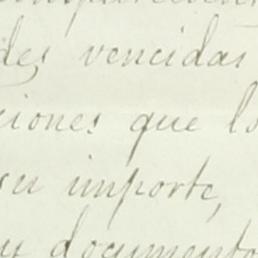 des vencidas
ciones que lo
su importe,
u documento